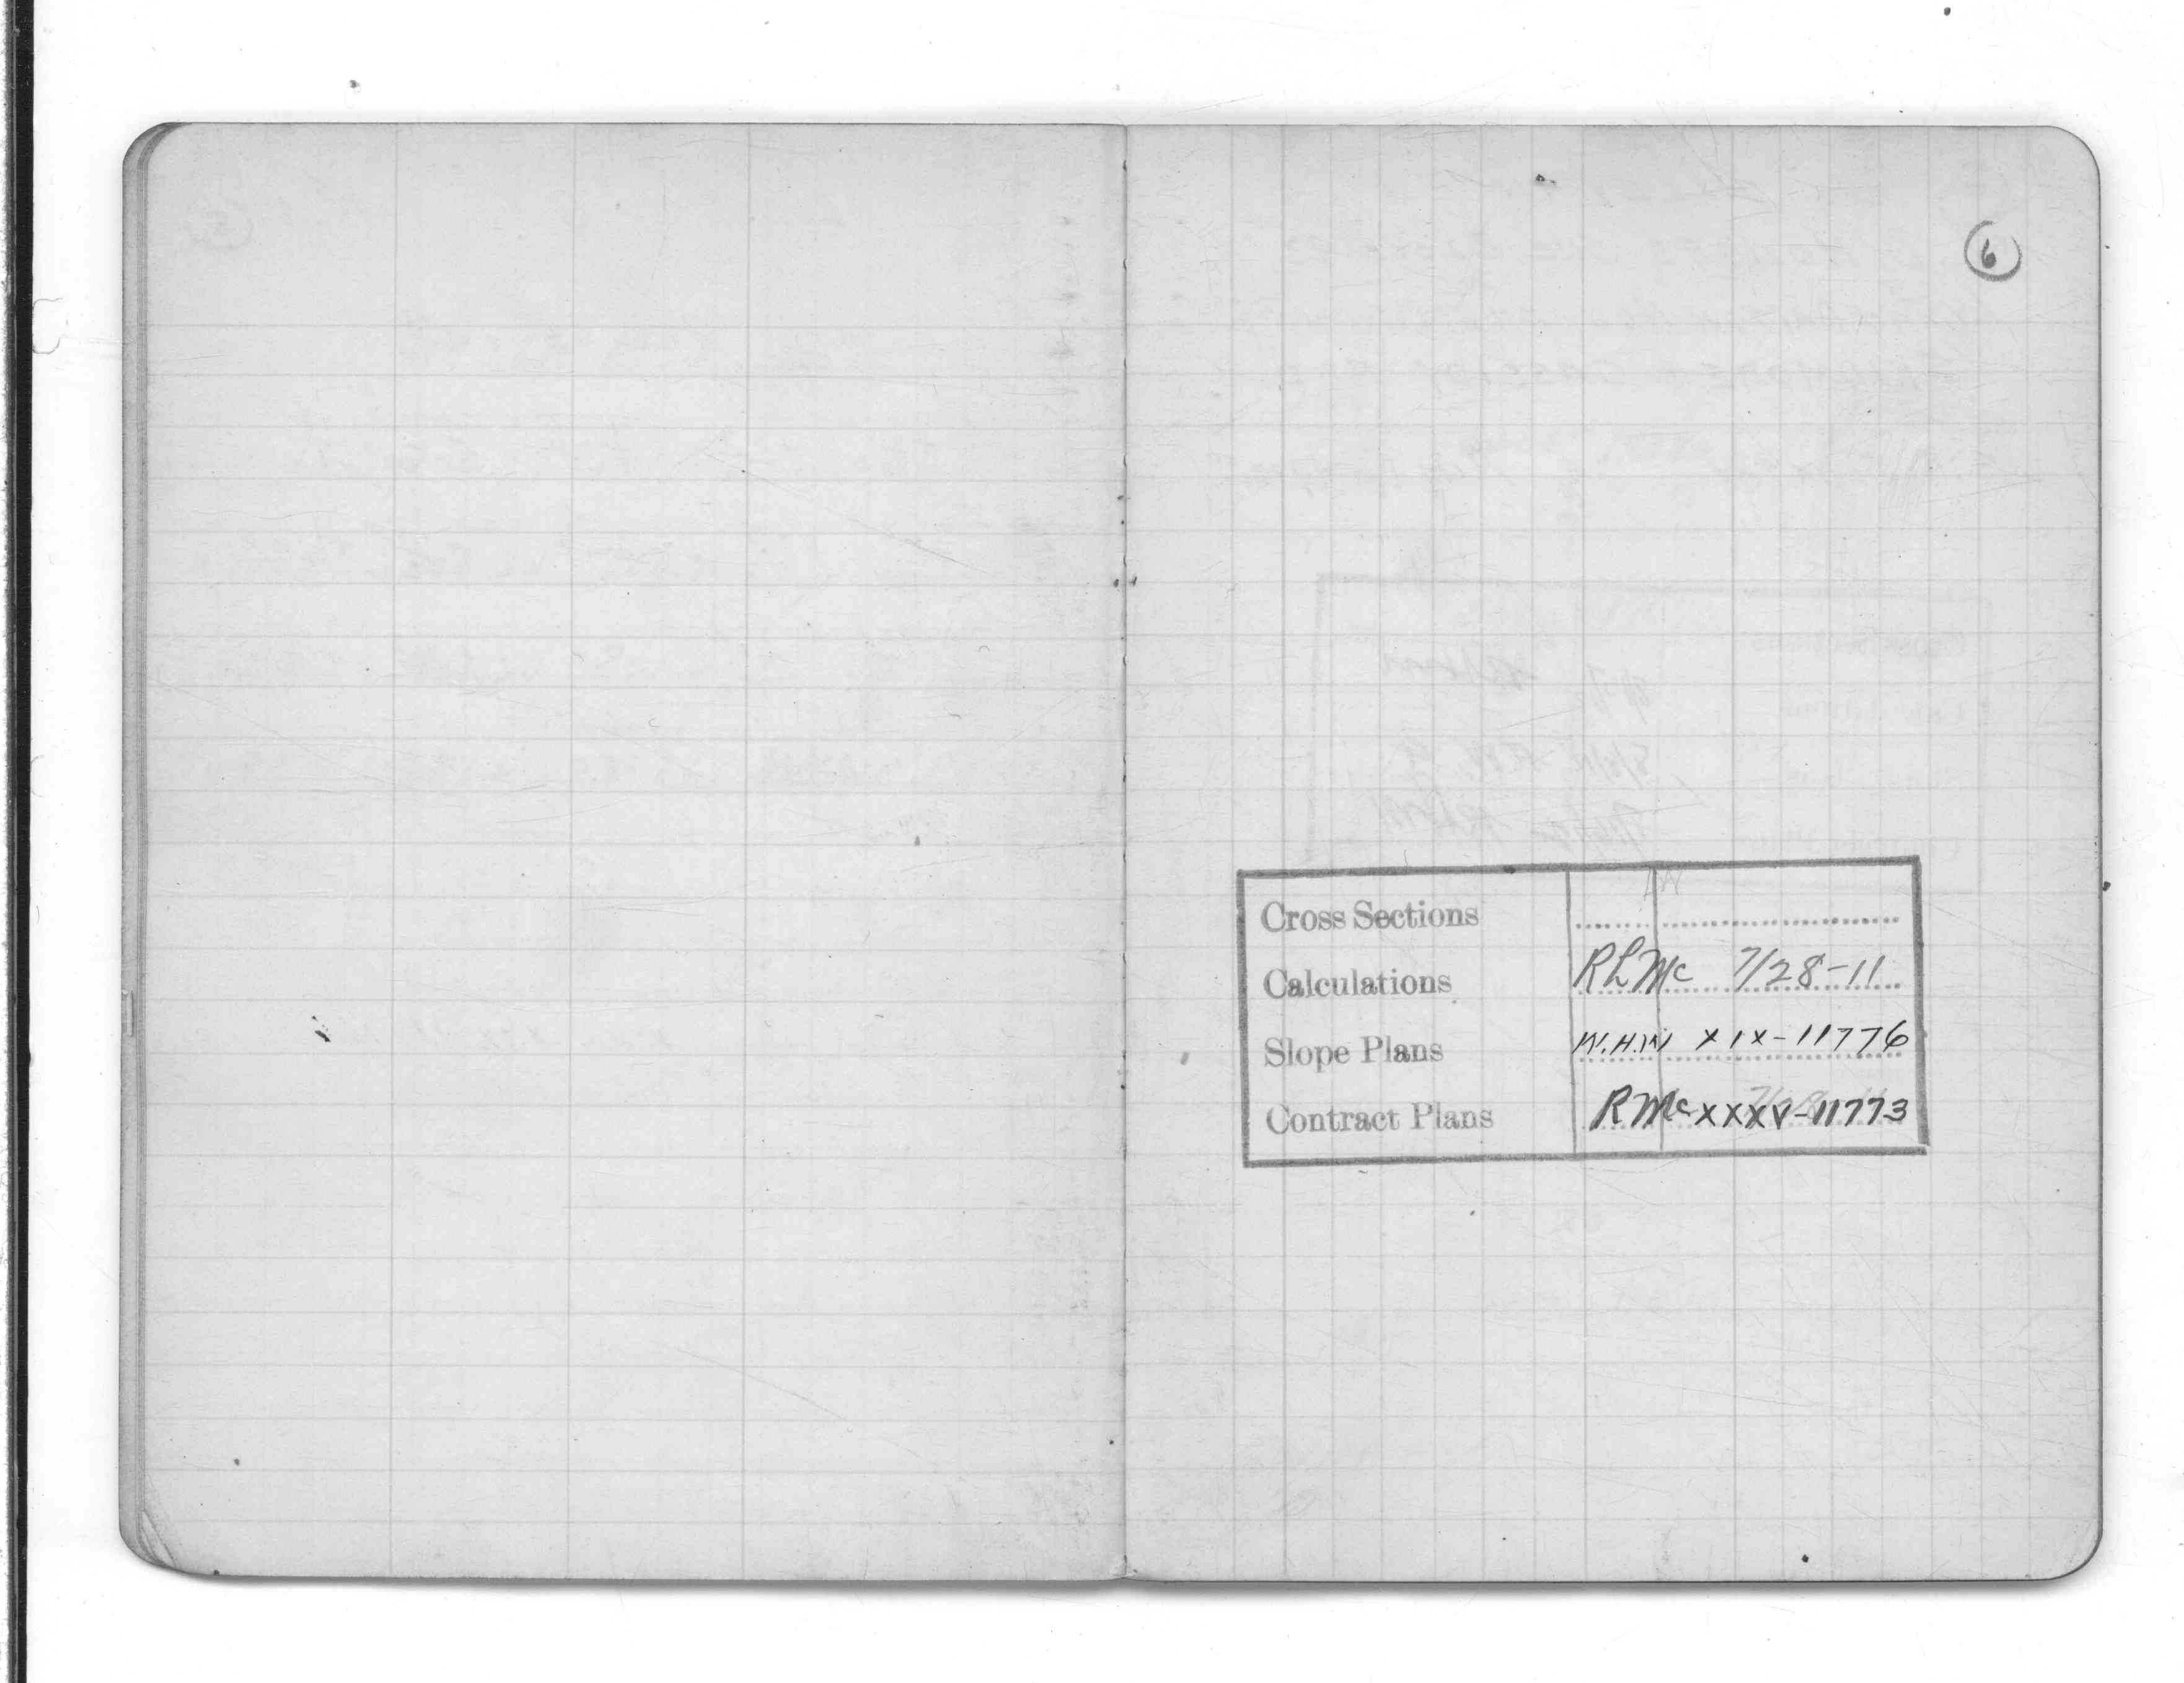 6
Cross Sections
Calculations RLMc 7/28-11
Slope Plans W.H.W XIX-11776
Contract Plans RMc XXXV-11773